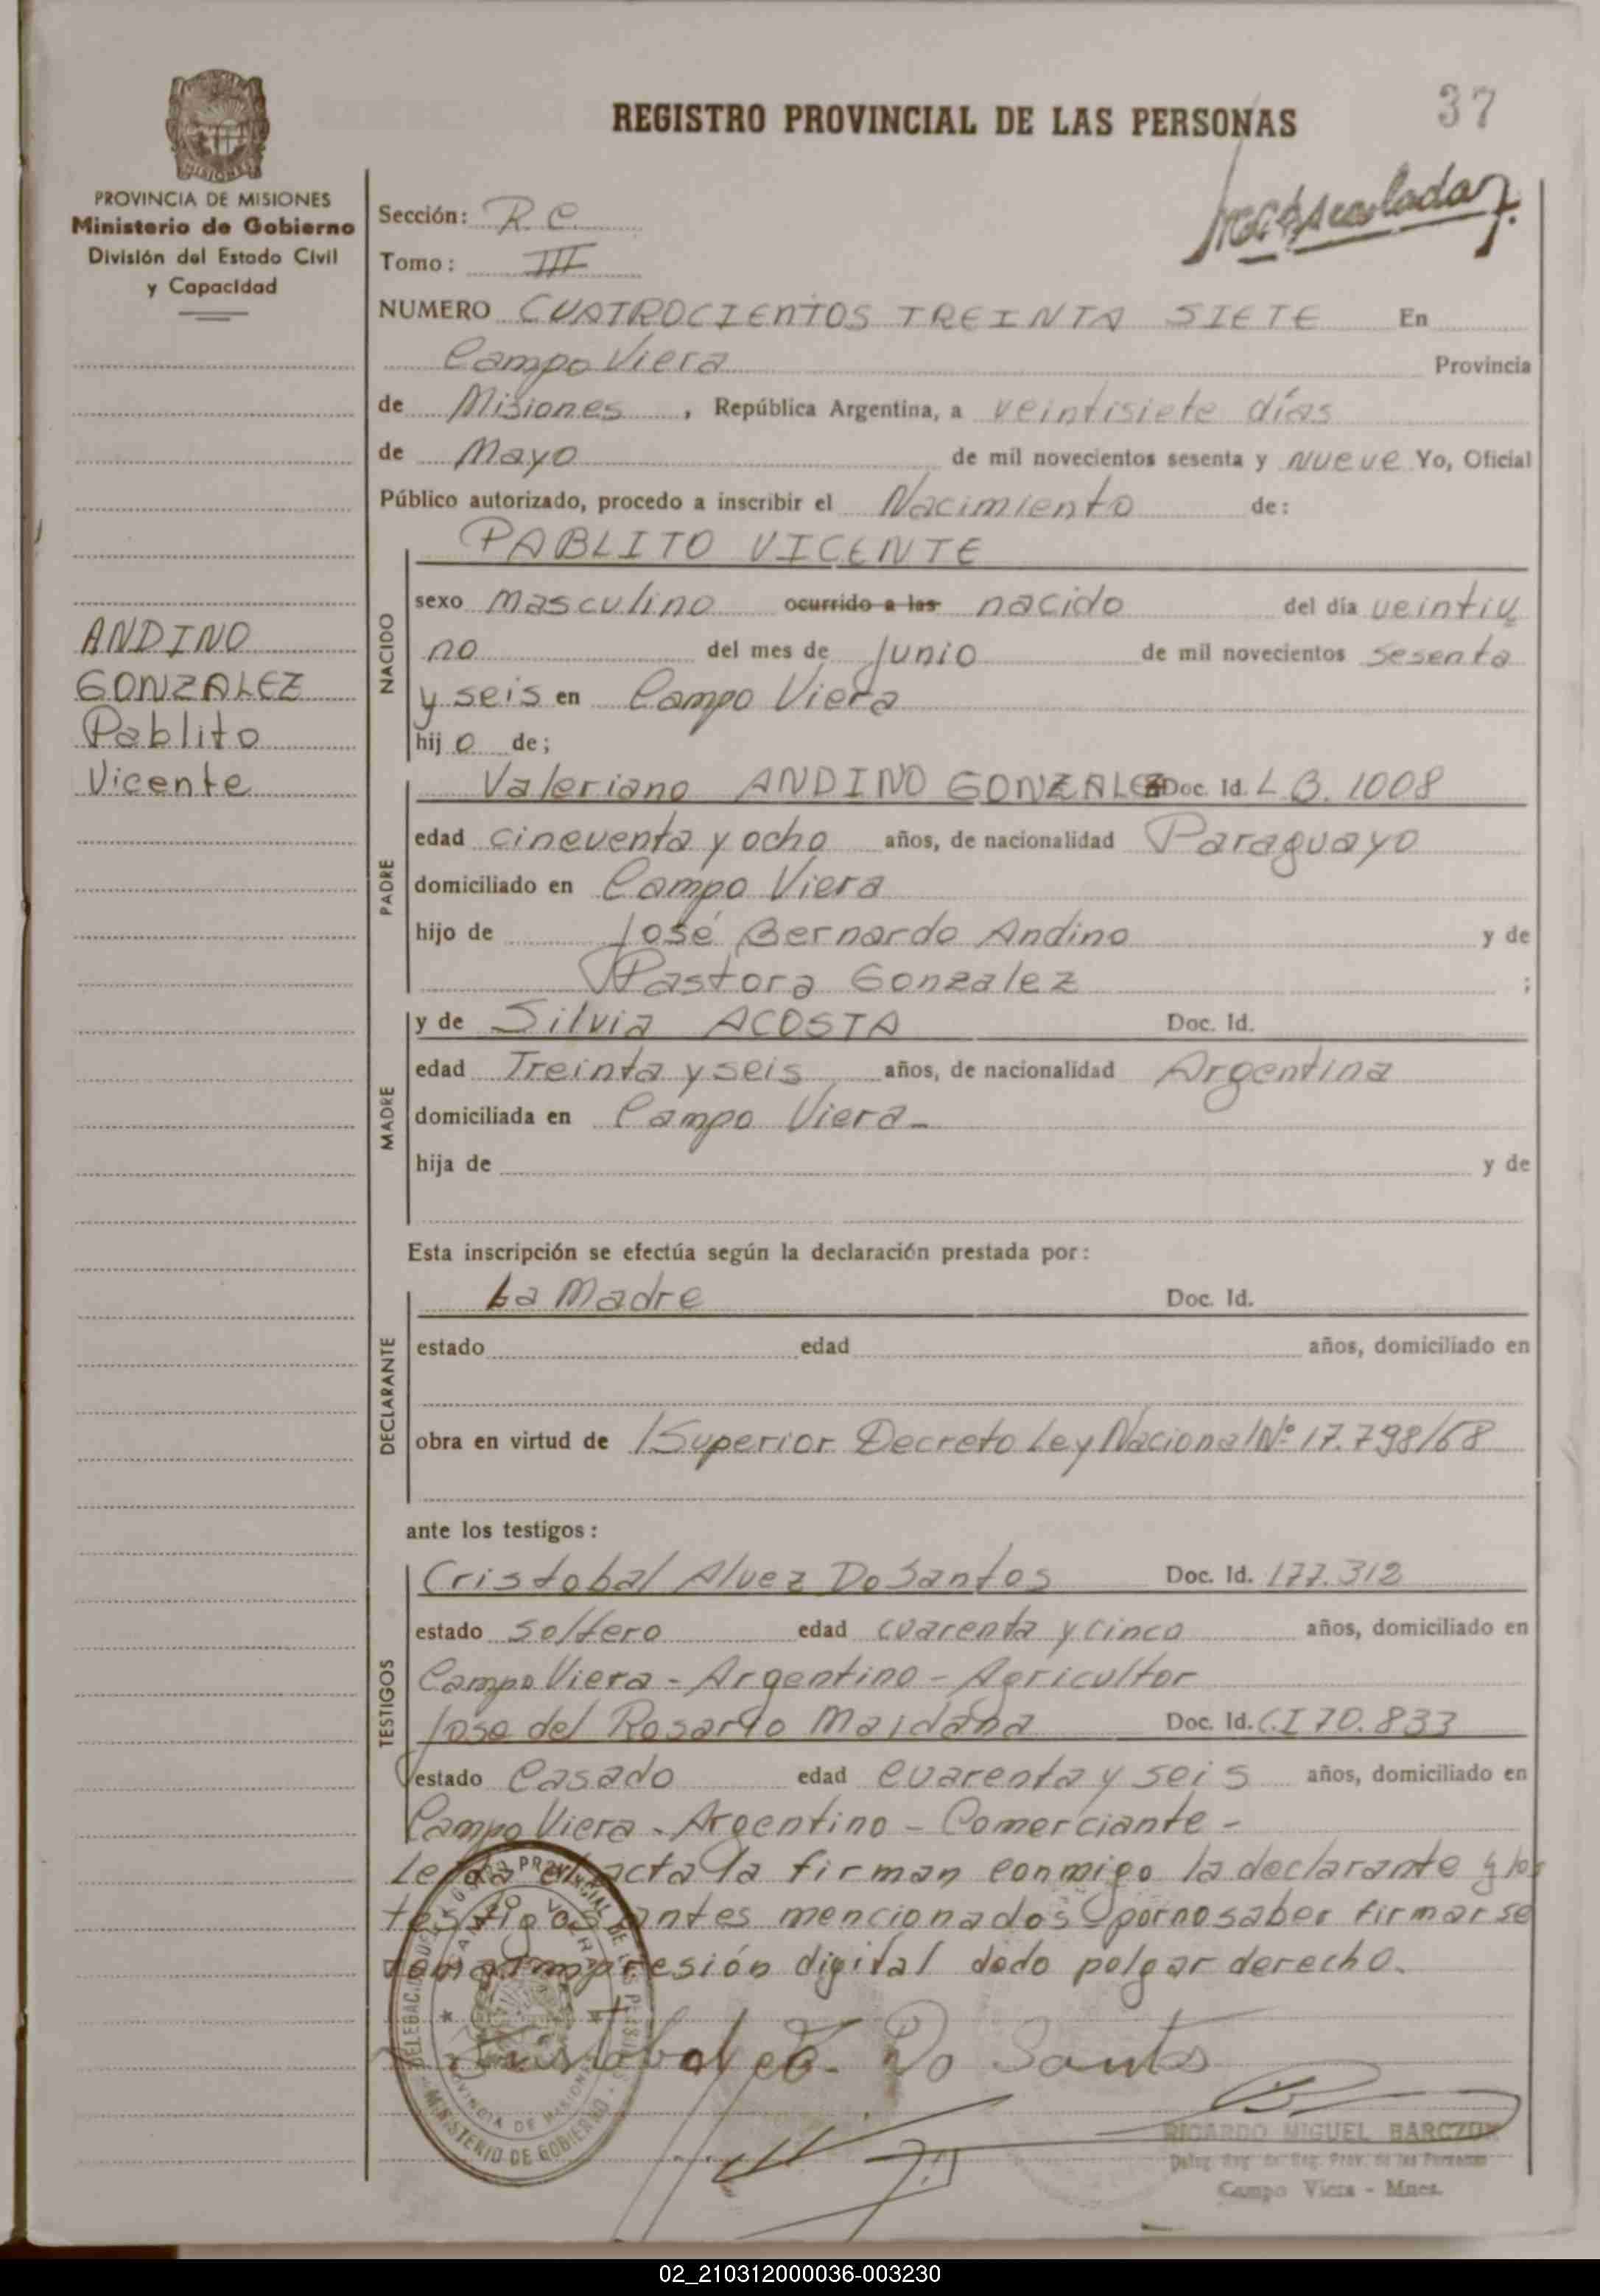 REGISTRO PROVINCIAL DE LAS PERSONAS
37
MISIONES
PROVINCIA DE MISIONES
Ministerio de Gobierno
División del Estado Civil
y Capacidad
ANDINO
GONZALEZ
Pablito
Vicente
Sección: R.C.
Tomo: III
NUMERO CUATROCIENTOS TREINTA SIETE En
Campo Viera Provincia
de Misiones, República Argentina, a veintisiete días
de Mayo de mil novecientos sesenta y nueve Yo, Oficial
Público autorizado, procedo a inscribir el Nacimiento de:
PABLITO VICENTE
NACIDO
sexo masculino ocurrido a las nacido del día veintiu
no del mes de Junio de mil novecientos sesenta
y seis en Campo Viera
hijo de;
PADRE
Valeriano ANDINO GONZALEZ Doc. Id. L B. 1008
edad cincuenta y ocho años, de nacionalidad Paraguayo
domiciliado en Campo Viera
hijo de José Bernardo Andino y de
Pastora Gonzalez ;
MADRE
y de Silvia ACOSTA Doc. Id.
edad Treinta y seis años, de nacionalidad Argentina
domiciliada en Campo Viera-
hija de y de
Esta inscripción se efectúa según la declaración prestada por:
DECLARANTE
La Madre Doc. Id.
estado edad años, domiciliado en
obra en virtud de Superior Decreto Ley Nacional Nº 17.798/68
ante los testigos:
TESTIGOS
Cristobal Alvez Do Santos Doc. Id. 177.312
estado soltero edad cuarenta y cinco años, domiciliado en
Campo Viera - Argentino - Agricultor
Jose del Rosario Maidana Doc. Id. C.I 70.833
estado Casado edad cuarenta y seis años, domiciliado en
Campo Viera - Argentino - Comerciante -
Leida el acta la firman conmigo la declarante y los
testigos antes mencionados por no saber firmar se
toma impresión digital dedo pulgar derecho.
Do Santos
MINISTERIO DE GOBIERNO
PROVINCIA DE MISIONES
RICARDO MIGUEL BARCZUK
Deleg. Reg. de Reg. Prov. de las Personas
Campo Viera - Mnes.
02_210312000036-003230